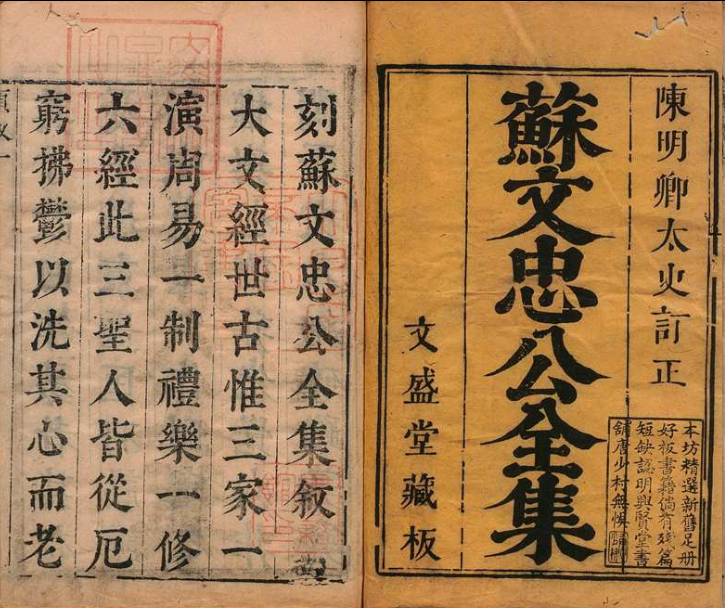 陳明卿太史訂正
蘇文忠公全集
文盛堂藏板
本坊精選新舊足冊
好板書籍倘有殘篇
短缺認明興賢堂書
舖唐少村無悞
刻蘇文忠公全集敘
大文經世古惟三家一
演周易一制禮樂一修
六經此三聖人皆從厄
窮拂鬱以洗其心而老